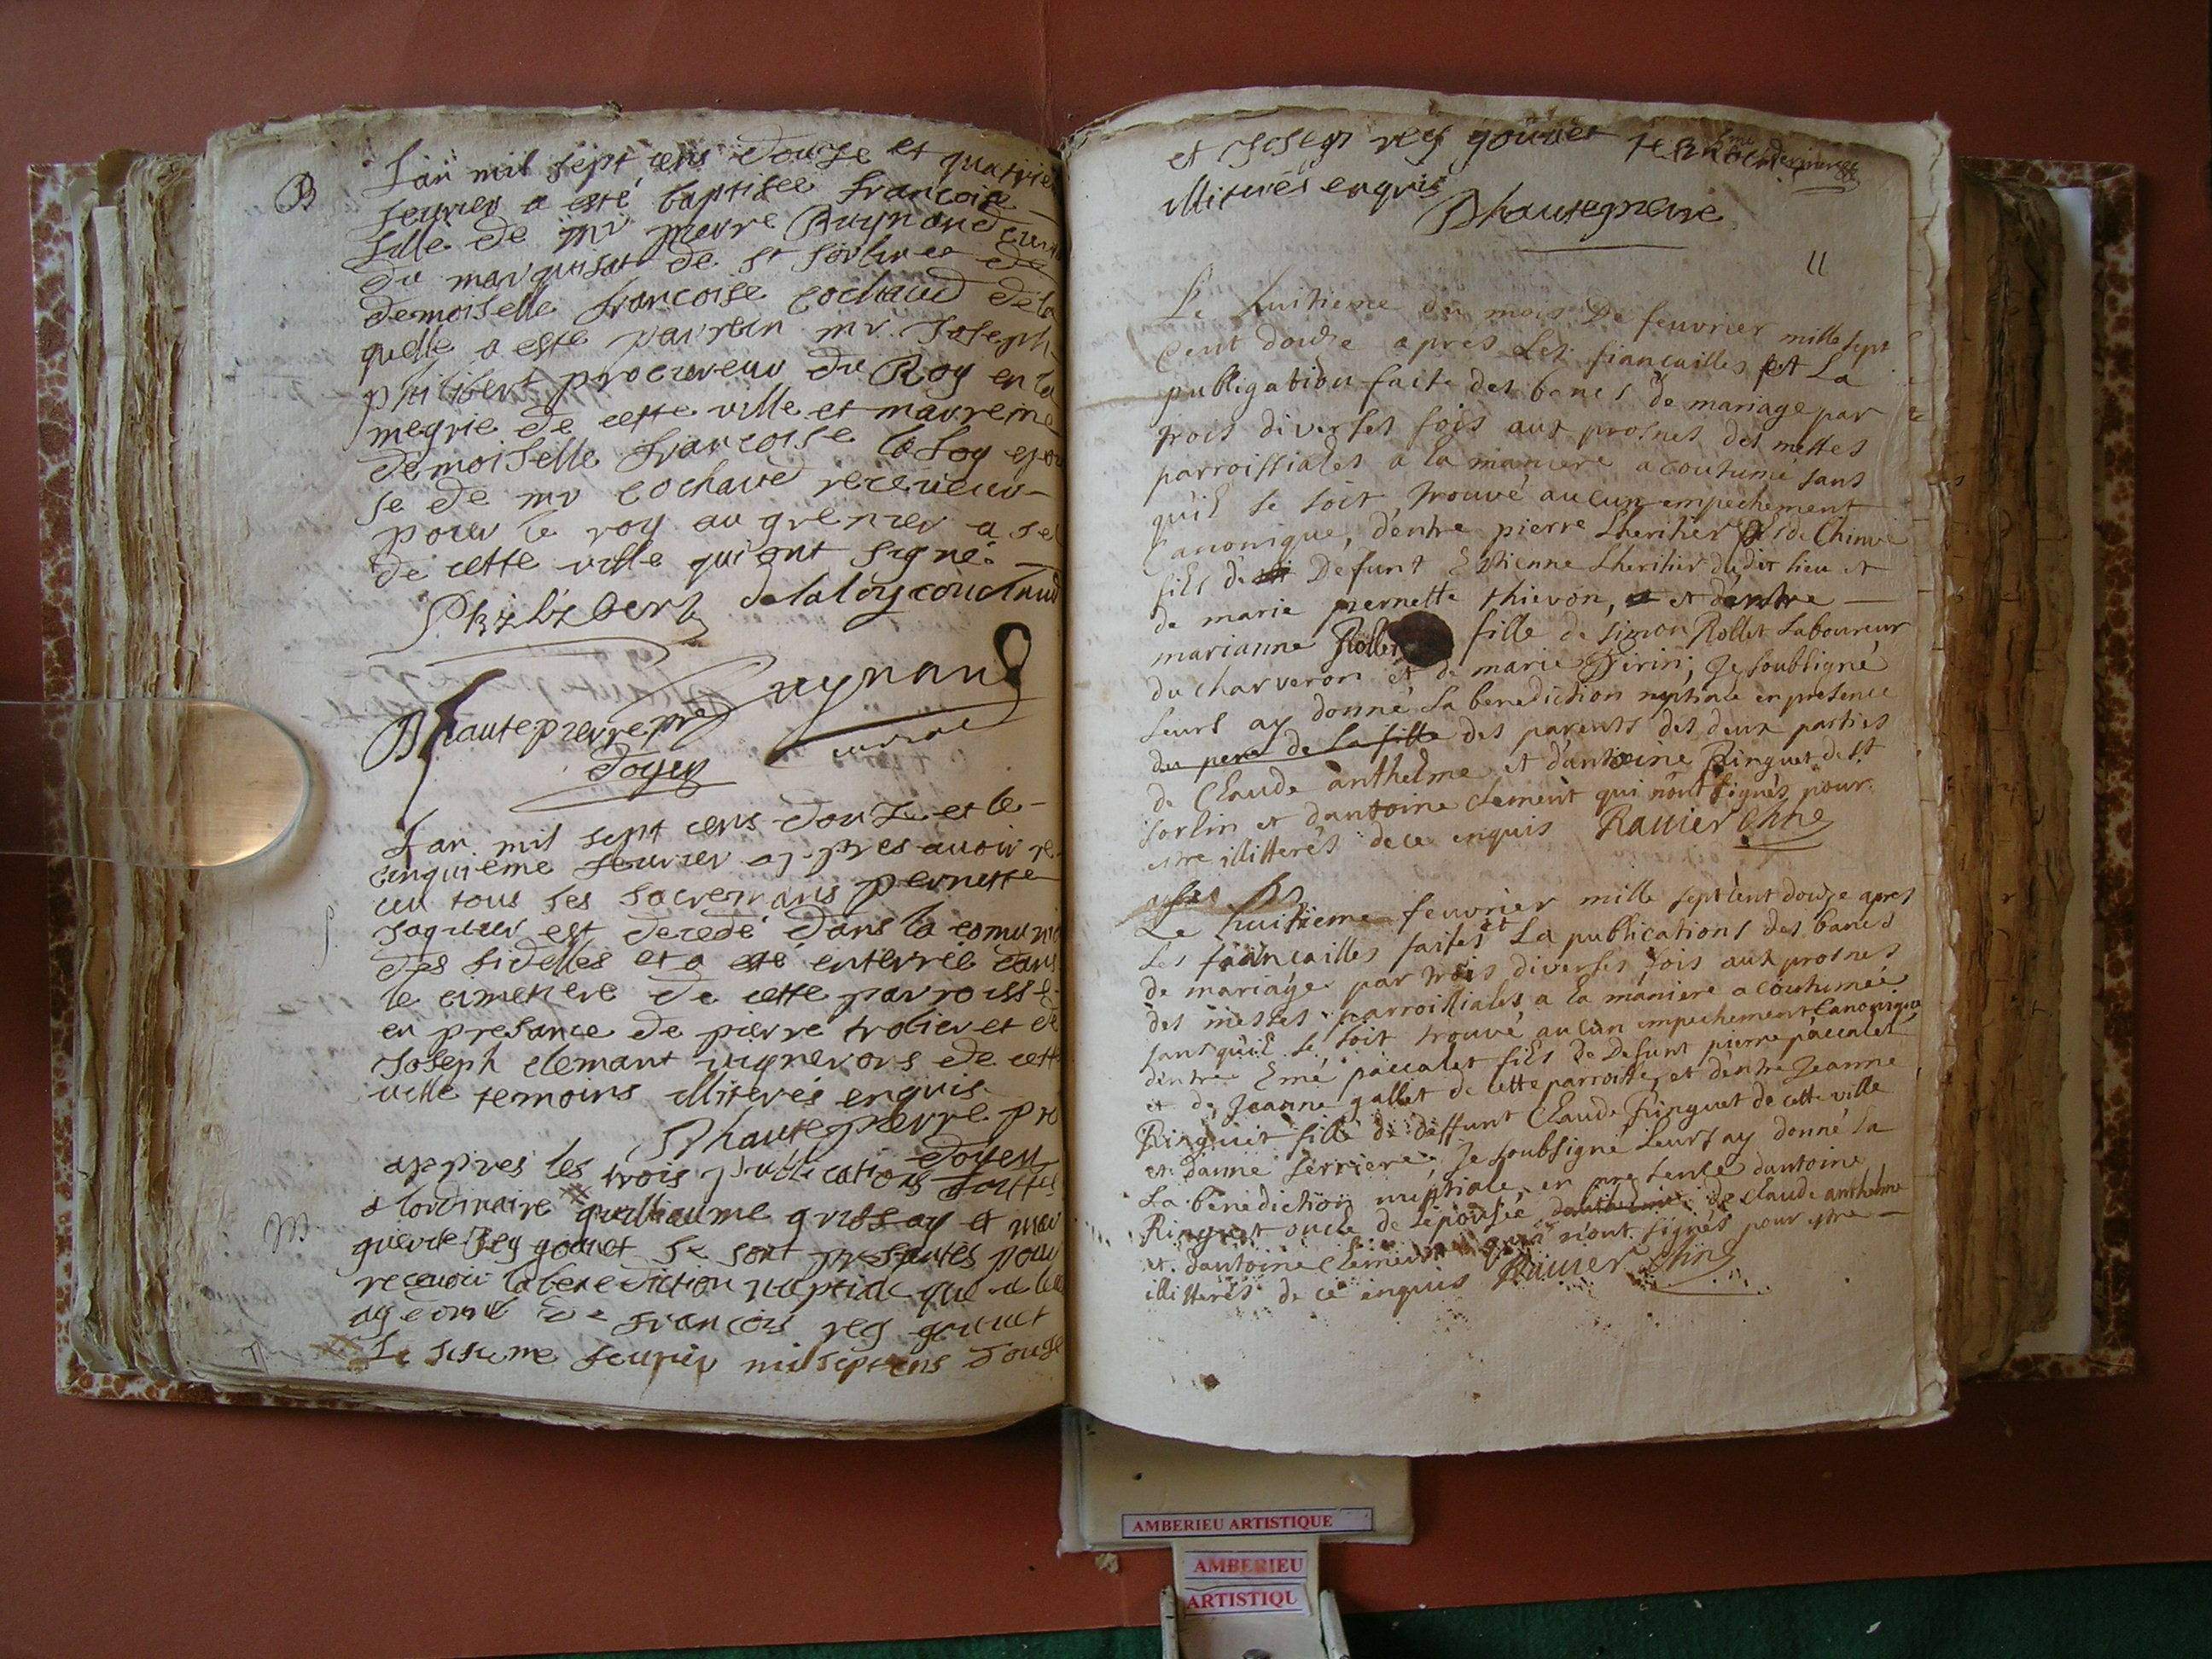 B
L'an mil sept cens douze et quatrie
feurier a esté baptisée françoise
fille de mr pierre Ruynand
du marquisat de st sorlin et de
demoiselle francoise cochaud de la
quelle a esté parrein mr Joseph
philibert procureur du Roy en la
megrie de cette ville et marreine
demoiselle francoise la foy epou
se de mr cochaud receueur
pour le roy au grenier a sel
de cette ville qui ont signé
Philibert delafoy couchaud
Ruynand
Bhautepierre pre
doyen
L'an mil sept cens douze et le
cinquieme feurier appres auoir re
ceu tous ses sacremans pernette
Jaquier est decedé dans la comunio
des fidelles et a esté enterrée dans
le cimetiere de cette parroisse
en presance de pierre trolier et de
Joseph clemant vignerons de cette
ville temoins illiterés enquis
Bhautepierre pre
doyen
M
appres les trois publications faittes
a lordinaire guilliaume grussay et mar
guerite rey gouuet se sont presantés pour
receuoir la benediction nuptiale que ie leur
ay donné françois rey gouuet
Le sisieme feurier mil sept cens douze
et Joseph rey gouuet
illiterés enquis
Bhautepierre
11
Le huitieme du mois de feuvrier mille sept
cent douze apres les fiancailles et La
publigation faite des bancs de mariage par
trois diverses fois aux prosnes des messes
parroissiales a la maniere acoutumé sans
qu'il se soit trouvé aucun empechement
canonique, d'entre pierre Lheritier
fils de Defunt Estienne Lheritier dudit lieu et
de marie pernette thievon, et d'entre
marianne Rollet fille de simon Rollet Laboureur
du charveron et de marie Pirin; Je soubsigné
Leurs ay donné La benediction nuptiale en presence
du pere de la fille des parents des deux parties
de Claude anthelme et d'antoine Ringuet de st
sorlin et d'antoine Clement qui n'ont signés pour
estre illitterés de ce enquis Rauier
Le huitieme feuvrier mille sept cent douze apres
Les fiancailles faites et La publications des bancs
de mariage par trois diverses fois aux prosnes
des messes parroissiales a la maniere acoutumée
sans qu'il se soit trouvé aucun empechement Canonique
d'entre Emé paccalet fils de Defunt pierre paccalet
et de Jeanne gallet de cette parroisse, et d'entre Jeanne
Ringuet fille de deffunt Claude Ringuet de cette ville
et d'anne ferriere, Je soubsigné Leurs ay donné la
La benediction nuptiale en presence d'antoine
Ringuet oncle de L'epousée de Claude anthelme
et d'antoine Clement qui n'ont signés pour estre
illitterés de ce enquis Rauier
AMBERIEU ARTISTIQUE
AMBERIEU
ARTISTIQU